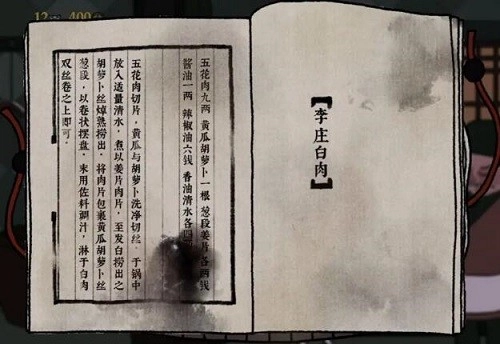 【李庄白肉】
五花肉九两 黄瓜胡萝卜一根 葱段姜片各两钱
酱油一两 辣椒油六钱 香油清水各四
五花肉切片，黄瓜与胡萝卜洗净切丝。于锅中
放入适量清水，煮以姜片肉片，至发白捞出之
胡萝卜丝焯熟捞出，将肉片包裹黄瓜胡萝卜丝
葱段，以卷状摆盘，末用佐料调汁，淋于白肉
双丝卷之上即可。